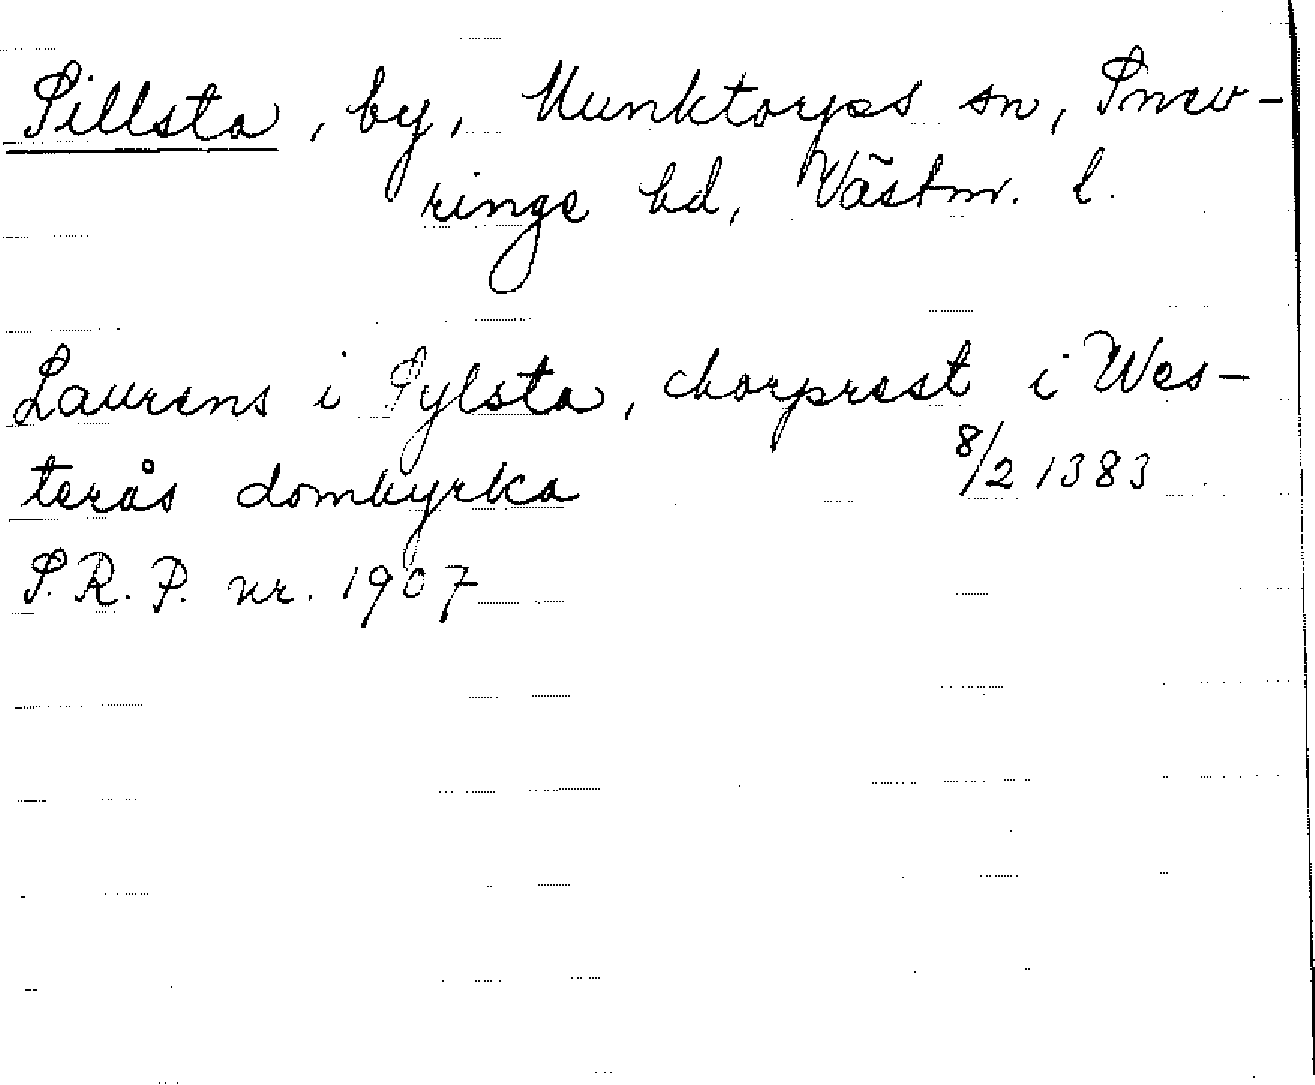 Sillsta, by, Munktorps sn, Snev-
ringe hd, Västm. l.
Laurens i Sylsta, chorprest i Wes-
terås domkyrka 8/2 1383
S.R.P. nr. 1907